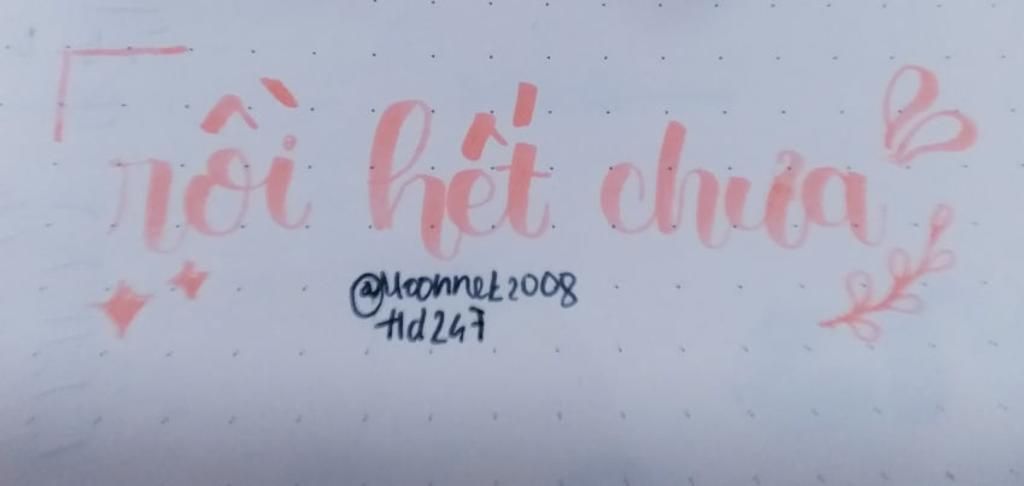 rồi hết chưa
@Moonnek2008
Hd247